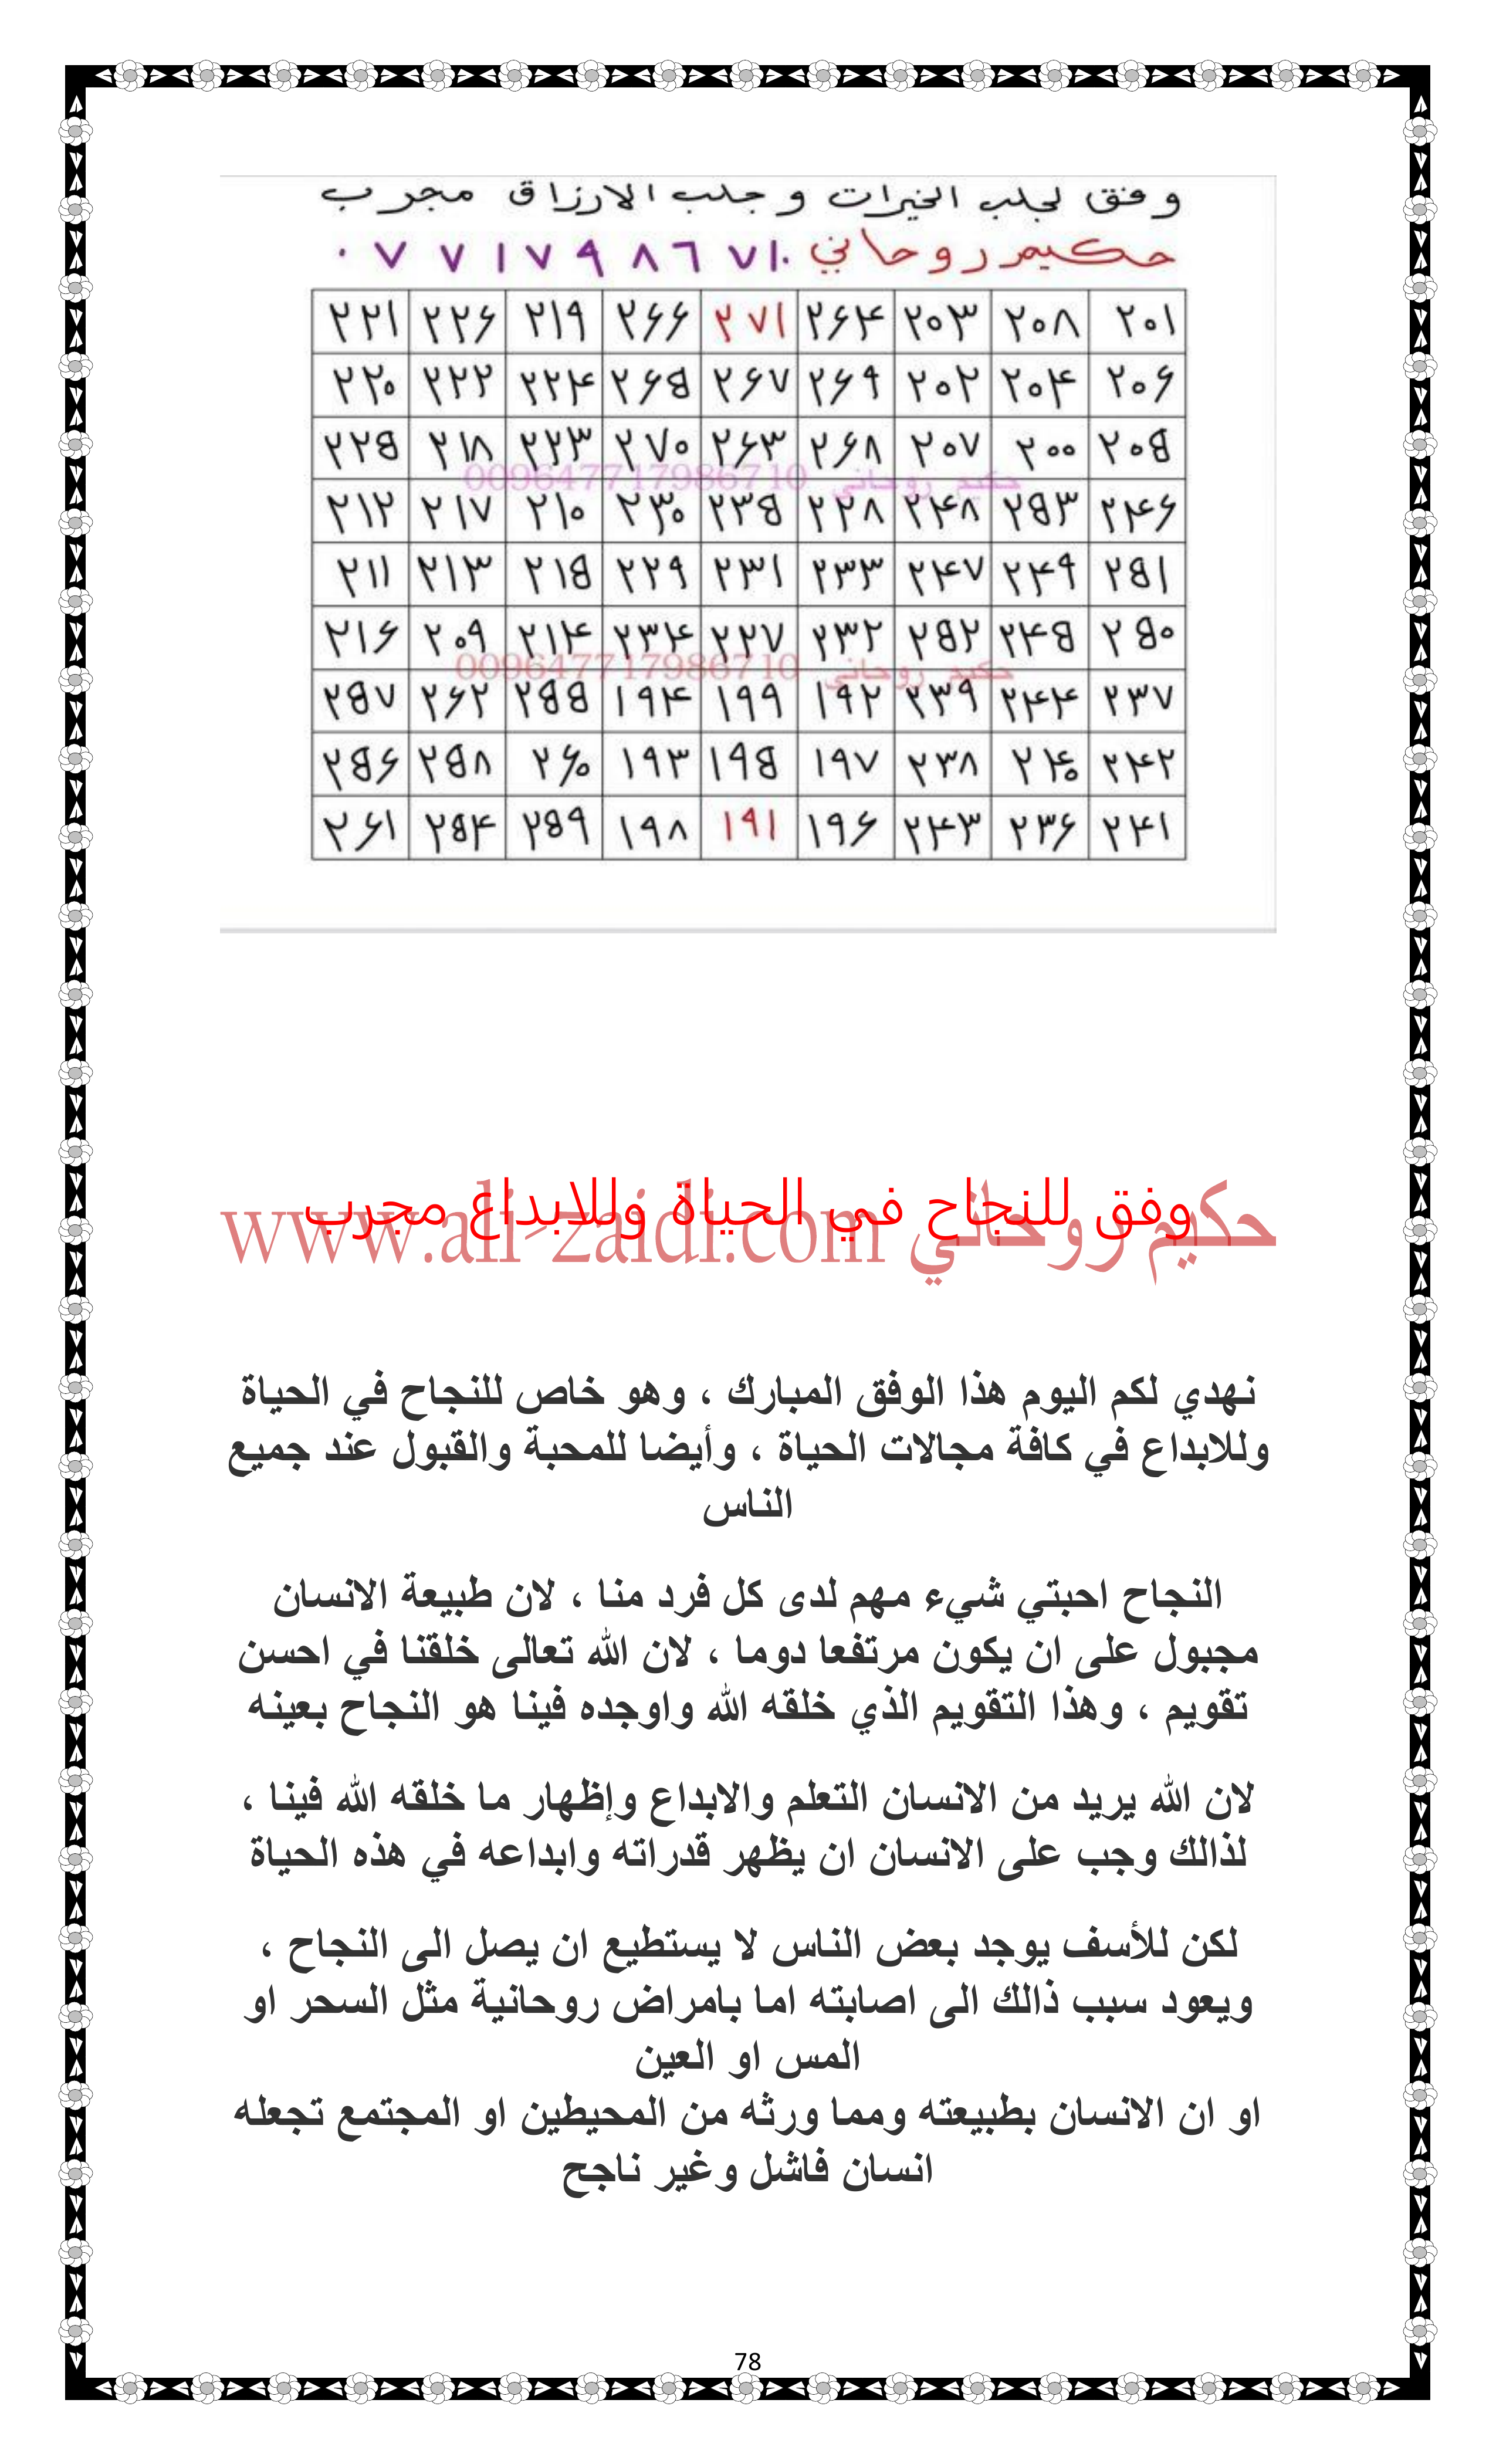 وفق لجلب الخيرات و جلب الارزاق مجرب
حكيم روحاني ٠٧٧١٧٩٨٦٧١٠
٢٢١ ٢٢۶ ٢١٩ ٢۶۶ ٢٧١ ٢۶۴ ٢٠٣ ٢٠٨ ٢٠١
٢٢٠ ٢٢٢ ٢٢۴ ٢۶۵ ٢۶٧ ٢۶٩ ٢٠٢ ٢٠۴ ٢٠۶
٢٢۵ ٢١٨ ٢٢٣ ٢٧٠ ٢۶٣ ٢۶٨ ٢٠٧ ٢٠٠ ٢٠۵
حكيم روحاني 009647717986710
٢١٢ ٢١٧ ٢١٠ ٢٣٠ ٢٣۵ ٢٢٨ ٢۴٨ ٢۵٣ ٢۴۶
٢١١ ٢١٣ ٢١۵ ٢٢٩ ٢٣١ ٢٣٣ ٢۴٧ ٢۴٩ ٢۵١
٢١۶ ٢٠٩ ٢١۴ ٢٣۴ ٢٢٧ ٢٣٢ ٢۵٢ ٢۴۵ ٢۵٠
حكيم روحاني 009647717986710
٢۵٧ ٢۶٢ ٢۵۵ ١٩۴ ١٩٩ ١٩٢ ٢٣٩ ٢۴۴ ٢٣٧
٢۵۶ ٢۵٨ ٢۶٠ ١٩٣ ١٩۵ ١٩٧ ٢٣٨ ٢۴٠ ٢۴٢
٢۶١ ٢۵۴ ٢۵٩ ١٩٨ ١٩١ ١٩۶ ٢۴٣ ٢٣۶ ٢۴١
وفق للنجاح في الحياة وللابداع مجرب
حكيم روحاني www.ali-zaidi.com
نهدي لكم اليوم هذا الوفق المبارك ، وهو خاص للنجاح في الحياة
وللابداع في كافة مجالات الحياة ، وأيضا للمحبة والقبول عند جميع
الناس
النجاح احبتي شيء مهم لدى كل فرد منا ، لان طبيعة الانسان
مجبول على ان يكون مرتفعا دوما ، لان الله تعالى خلقنا في احسن
تقويم ، وهذا التقويم الذي خلقه الله واوجده فينا هو النجاح بعينه
لان الله يريد من الانسان التعلم والابداع وإظهار ما خلقه الله فينا ،
لذالك وجب على الانسان ان يظهر قدراته وابداعه في هذه الحياة
لكن للأسف يوجد بعض الناس لا يستطيع ان يصل الى النجاح ،
ويعود سبب ذالك الى اصابته اما بامراض روحانية مثل السحر او
المس او العين
او ان الانسان بطبيعته ومما ورثه من المحيطين او المجتمع تجعله
انسان فاشل وغير ناجح
78